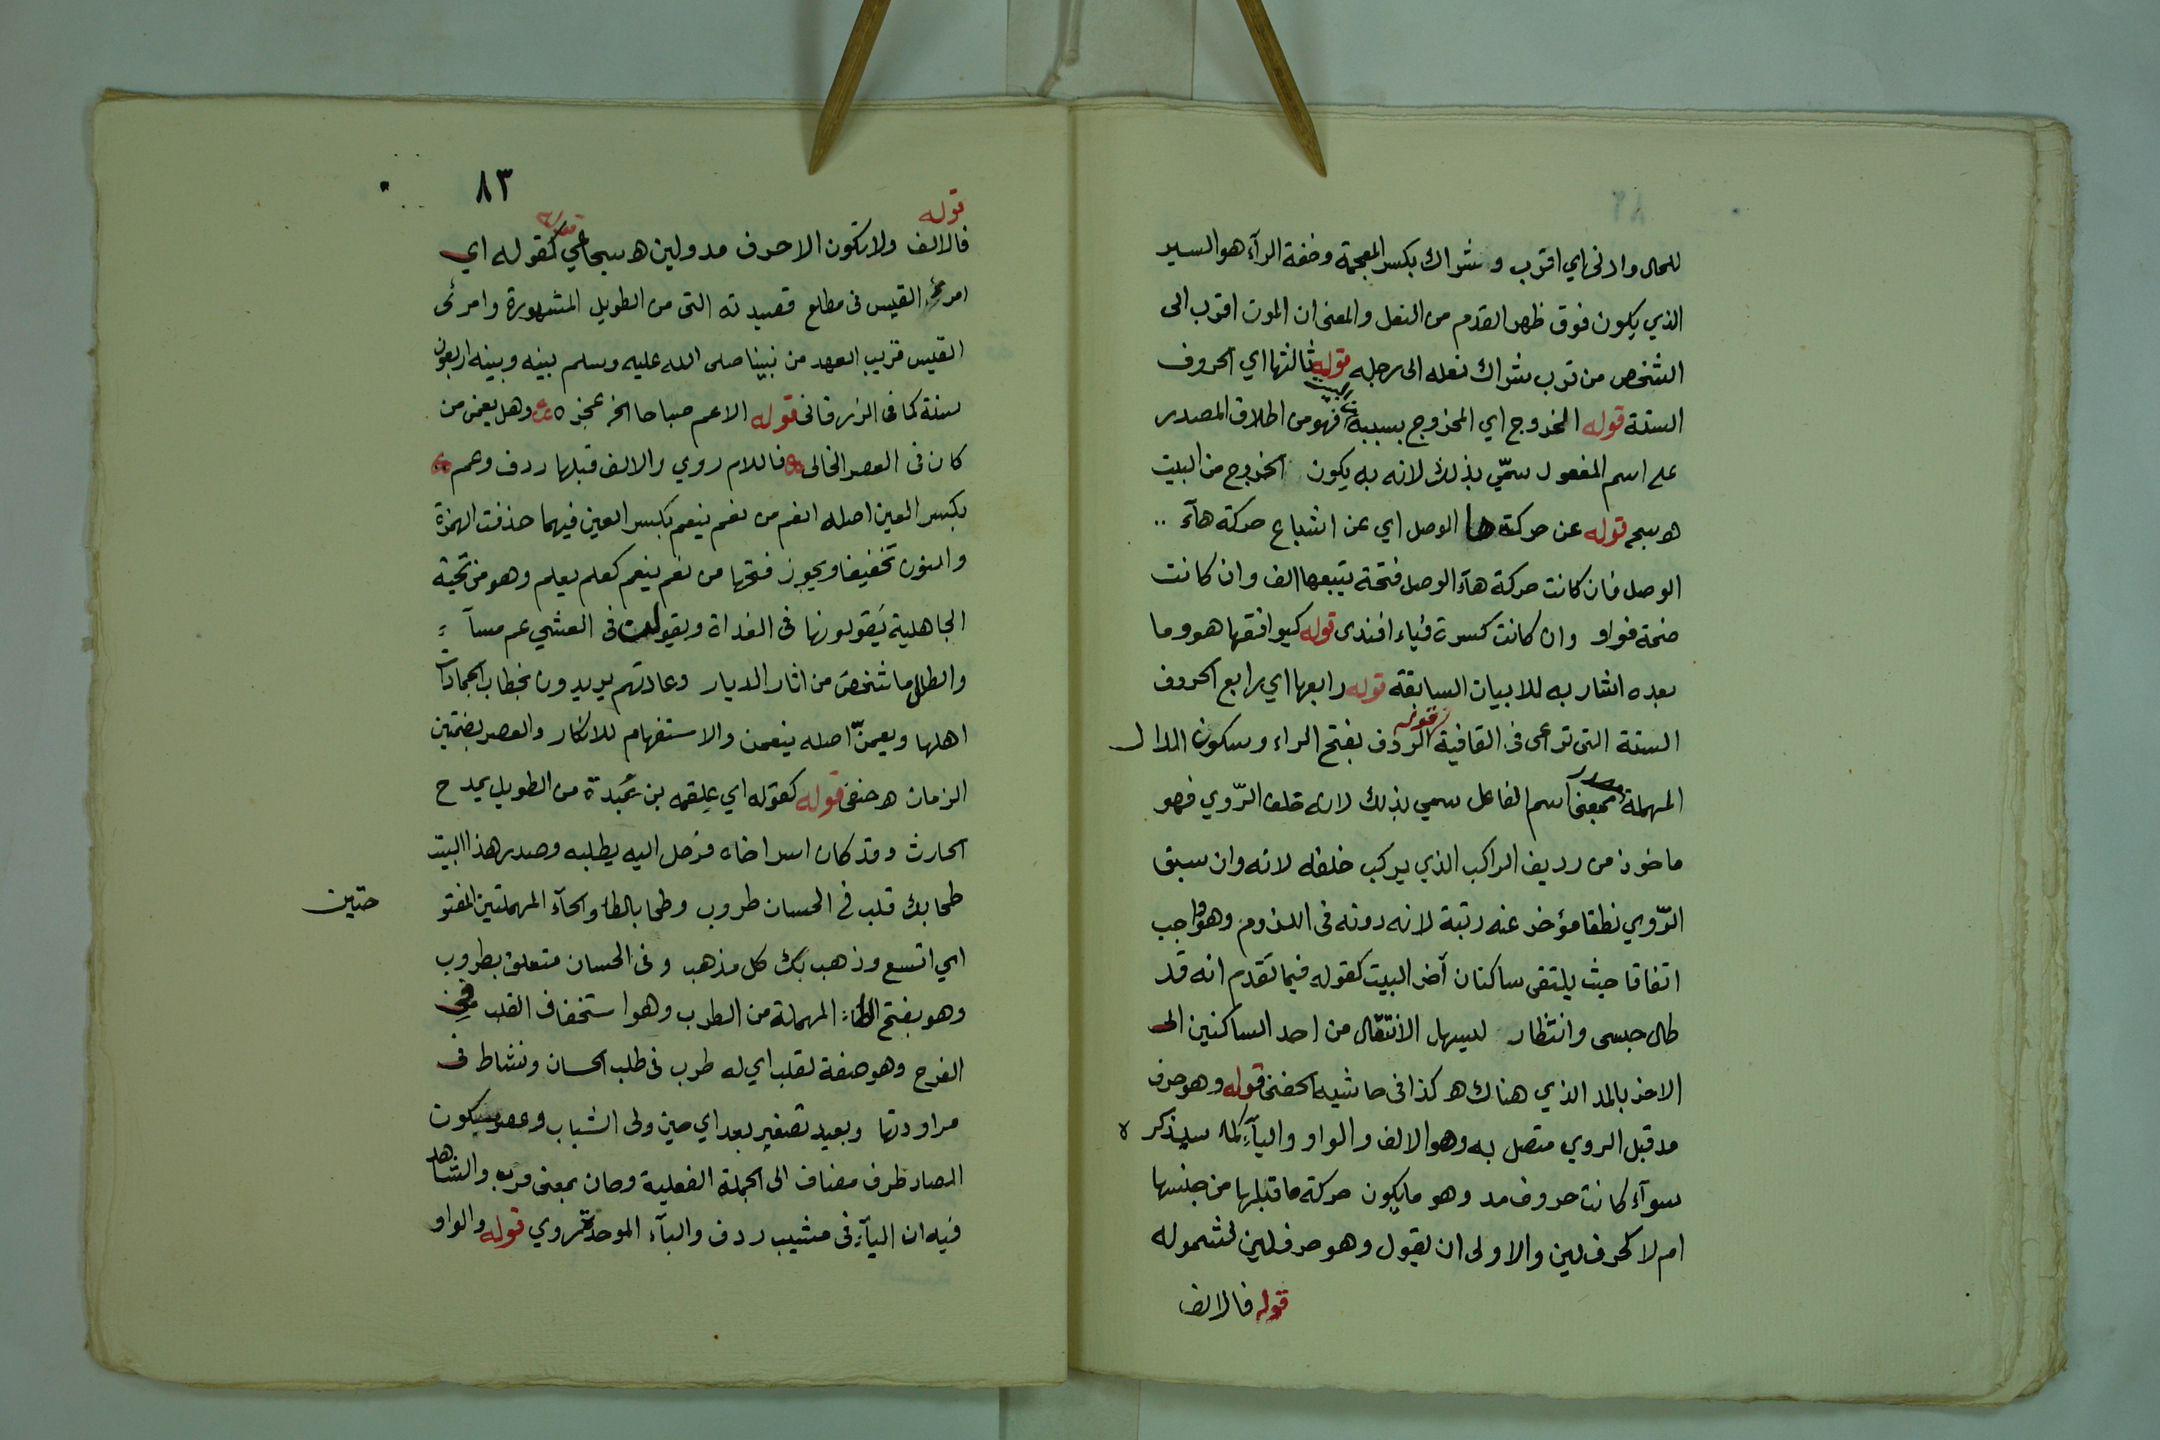 للحال وادنى اي اقرب وشراك بكسر المعجمة وخفة الرآء هو السير
الذي يكون فوق ظهر القدم من النعل والمعنى ان الموت اقرب الى
الشخص من قرب شراك نعله الى رجله قوله ثالثها اي الحروف
الستة قوله الخروج اي المخروج بسببه من البيت فهو من اطلاق المصدر
على اسم المفعول سمّي بذلك لانه به يكون الخروج من البيت
ه سجم قوله عن حركة ها الوصل اي عن اشباع حركة هآء
الوصل فان كانت حركة هآء الوصل فتحة يتبعها الف وان كانت
ضمة فواو وان كانت كسرة فياء افندى قوله كيوافقها هو وما
بعده اشار به للابيات السابقة قوله رابعها اي رابع الحروف
الستة التى تراعى فى القافية قوله الردف بفتح الراء وسكون الدال
المهملة مصدر بمعنى اسم الفاعل سمي بذلك لانه خلف الرّوي فهو
ماخوذ من رديف الراكب الذي يركب خلفه لانه وان سبق
الرّوي نطقا مؤخر عنه رتبة لانه دونه فى اللزوم وهو واجب
اتفاقا حيث يلتقى ساكنان آخر البيت كقوله فيما تقدم انه قد
طال حبسى وانتظار ليسهل الانتقال من احد الساكنين الى
الاخر بالمد الذي هناك ه كذا فى حاشية الحفنى قوله وهو حرف
مد قبل الروي متصل به وهو الالف والواو واليآء كما سيذكره
سوآء كانت حروف مد وهو ما يكون حركة ما قبلها من جنسها
ام لا كحرف لين والاولى ان يقول وهو حرف لين لشموله
قوله فالالف
٨٣
قوله
فالالف ولا تكون الاحرف مد ولين ه سجاعي قوله كقوله اي
امرئ القيس فى مطلع قصيدته التى من الطويل المشهورة وامرئى
القيس قريب العهد من نبينا صلى الله عليه وسلم بينه وبينه اربعون
سنة كما فى الزرقانى قوله الاعم صباحا الخ عجزه وهل يعمن من
كان فى العصر الخالى فاللام روي والالف قبلها ردف وعم
بكسر العين اصله انعم من نعم ينعم بكسر العين فيهما حذفت الهمزة
والنون تخفيفا ويجوز فتحها من نعم ينعم كعلم يعلم وهو من تحية
الجاهلية يقولونها فى الغداة ويقولون فى العشي عم مسآء
والطلل ما شخص من اثار الديار وعادتهم يريدون بخطاب الجمادات
اهلها ويعمنّ اصله ينعمن والاستفهام للانكار والعصر بضمتين
الزمان ه حفنى قوله كقوله اي علقمه بن عُبدة من الطويل يمدح
الحارث وقد كان اسر اخاه فرحل اليه يطلبه وصدر هذا البيت
طحا بك قلب في الحسان طروب وطحا بالطا والحآء المهملتين المفتو
حتين
اي اتسع وذهب بك كل مذهب وفى الحسان متعلق بطروب
وهو بفتح الطاء المهملة من الطرب وهو استخفاف القلب في
الفرح وهو صفة لقلب اي له طرب فى طلب الحسان ونشاط فى
مراودتها وبعيد تصغير بعد اي حين ولى الشباب وعصر بسكون
الصاد ظرف مضاف الى الجملة الفعلية وحان بمعنى قرب والشاهد
فيه ان اليآء فى مشيب ردف والبآء الموحدة روي قوله والواو